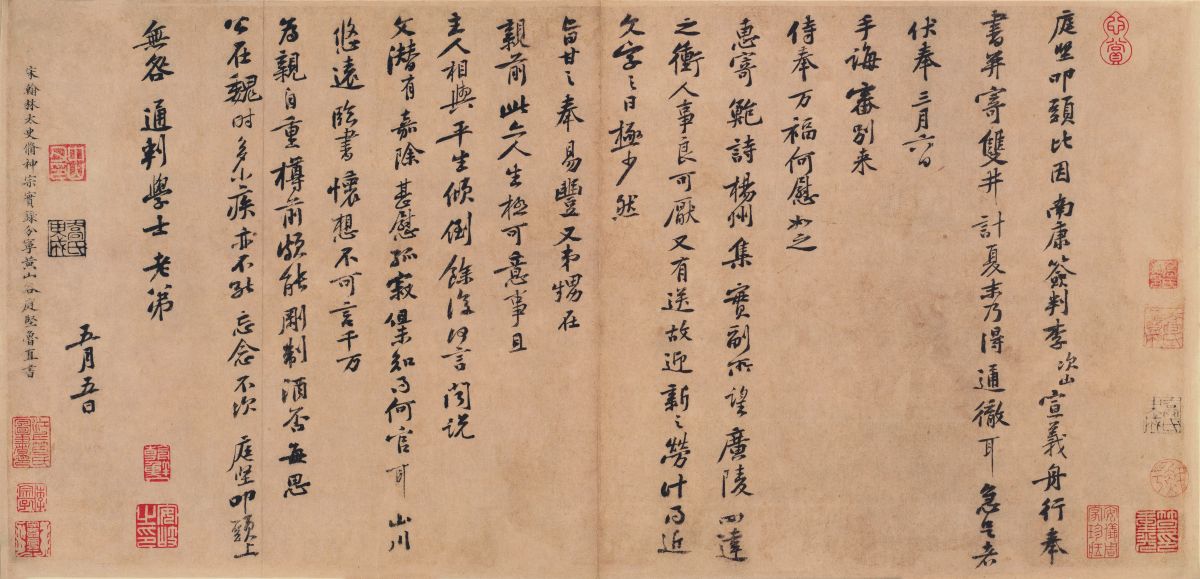 庭堅叩頭比因南康簽判李次山宣義舟行奉
書并寄雙井計夏末乃得通徹耳急足者
伏奉三月六日
手誨審別來
侍奉万福何慰如之
惠寄鮑詩楊州集實副所望廣陵四達
之衝人事良可厭又有送故迎新之勞計得近
文字之日極少然
旨甘之奉易豐又弟甥在
親前此亦人生極可意事且
主人相與平生傾倒餘復何言聞說
文潛有嘉除甚慰孤寂知得何官耳山川
悠遠臨書懷想不可言千万
為親自重樽前頗能剛制酒否每思
公在魏時多小疾亦不能忘念不次庭堅叩頭上
無咎通判學士老弟
五月五日
宋翰林太史脩神宗實錄分寧黃山谷庭堅魯直書
心賞
安儀周家珍藏
安岐之印